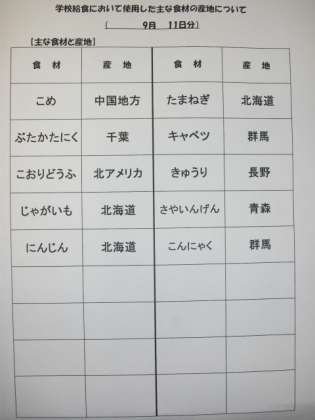 学校給食において使用した主な食材の産地について
( 9月 11日分)
[主な食材と産地]
食 材 産 地 食 材 産 地
こめ 中国地方 たまねぎ 北海道
ぶたかたにく 千葉 キャベツ 群馬
こおりどうふ 北アメリカ きゅうり 長野
じゃがいも 北海道 さやいんげん 青森
にんじん 北海道 こんにゃく 群馬